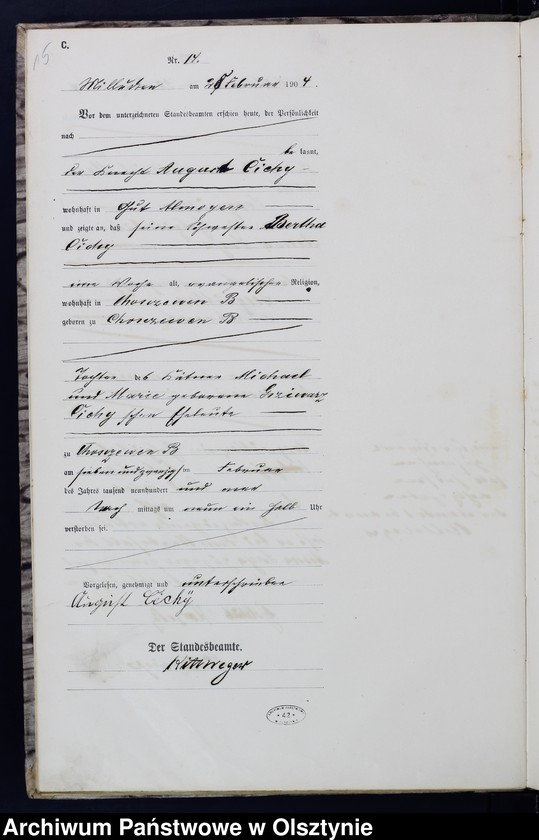 15
C.
Nr. 14.
Milluken am Februar 1904.
Vor dem unterzeichneten Standesbeamten erschien heute, der Persönlichkeit
nach
be kannt,
der Knecht August Cichy
wohnhaft in Gut
und zeigte an, daß seine Schwester Bertha
Cichy
eine Woche alt, evangelischer Religion,
wohnhaft in Choszewen B
geboren zu Choszewen B
Tochter des Kätners Michael
und Marie geborene
Cichy schen Eheleute
zu Choszewen B
am siebenundzwanzigsten Februar
des Jahres tausend neunhundert und vier
Nach mittags um neun ein halb Uhr
verstorben sei.
Vorgelesen, genehmigt und unterschrieben
August Cichy
Der Standesbeamte.
42
Archiwum Państwowe w Olsztynie